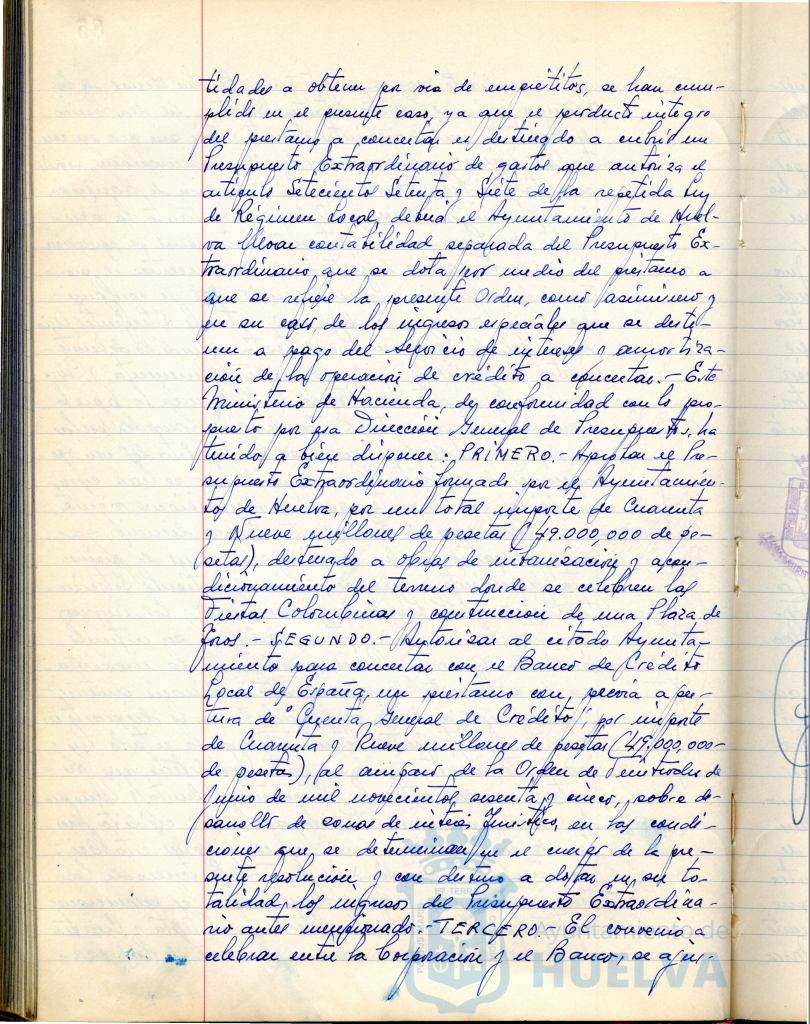 tidades a obtener por vía de empréstitos, se han cum-
plido en el presente caso, ya que el producto íntegro
del préstamo a concertar es destinado a cubrir un
Presupuesto Extraordinario de gastos que autoriza el
artículo Setecientos Setenta y Siete de la repetida Ley
de Régimen Local, deberá el Ayuntamiento de Huel-
va llevar contabilidad separada del Presupuesto Ex-
traordinario, que se dota por medio del préstamo a
que se refiere la presente Orden, como asimismo y
en su caso, de los ingresos especiales que se desti-
nen a pago del servicio de intereses y amortiza-
ción de la operación de crédito a concertar.- Este
Ministerio de Hacienda, de conformidad con lo pro-
puesto por esa Dirección General de Presupuestos, ha
tenido a bien disponer: PRIMERO.- Aprobar el Pre-
supuesto Extraordinario formado por el Ayuntamien-
to de Huelva, por un total importe de Cuarenta
y Nueve millones de pesetas (49.000,000 de pe-
setas), destinado a obras de urbanización y acon-
dicionamiento del terreno donde se celebren las
Fiestas Colombinas y construcción de una Plaza de
Toros.- SEGUNDO.- Autorizar al citado Ayunta-
miento para concertar con el Banco de Crédito
Local de España, un préstamo con previa aper-
tura de "Cuenta General de Crédito", por importe
de Cuarenta y Nueve millones de pesetas (49.000,000-
de pesetas), al amparo de la Orden de de
Junio de mil novecientos sesenta y cinco, sobre de-
sarrollo de zonas de interés Turístico, en las condi-
ciones que se determinan en el cuerpo de la pre-
sente resolución y con destino a dotar en su to-
talidad, los ingresos del Presupuesto Extraordina-
rio antes mencionado.- TERCERO.- El convenio a
celebrar entre la Corporación y el Banco, se ajus-
Ayuntamiento de
HUELVA